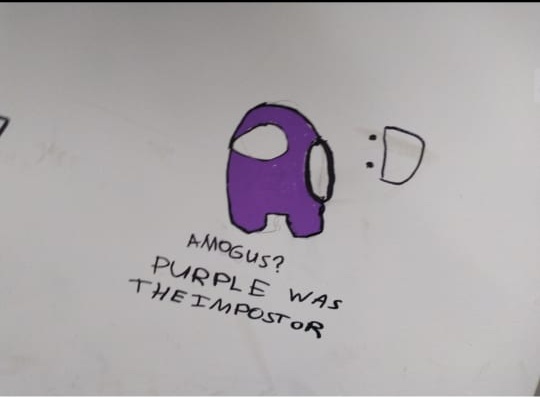 :D
AMOGUS?
PURPLE WAS
THE IMPOSTOR